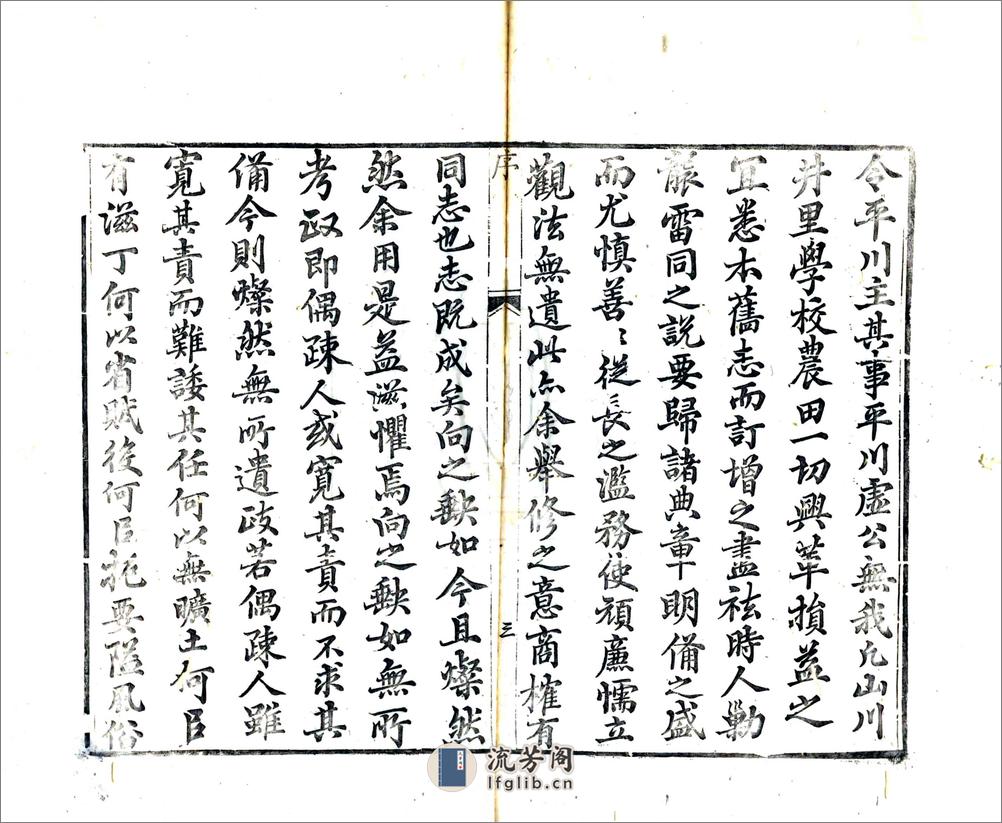 令平川主其事平川虛公無我凡山川
井里學校農田一切興革損益之
宜悉本舊志而訂增之盡祛時人勦
說雷同之說要歸諸典章明備之盛
而尤慎善〻從長之濫務使頑廉懦立
觀法無遺此亦余舉修之意商榷有
序
三
同志也志既成矣向之缺如今且燦然
然余用是益滋懼焉向之缺如無所
考政即偶疎人或寬其責而不求其
備今則燦然無所遺政若偶疎人雖
寬其責而難諉其任何以無曠土何以
有滋丁何以省賦後何以扼要隘風俗
流芳阁
lfglib.cn